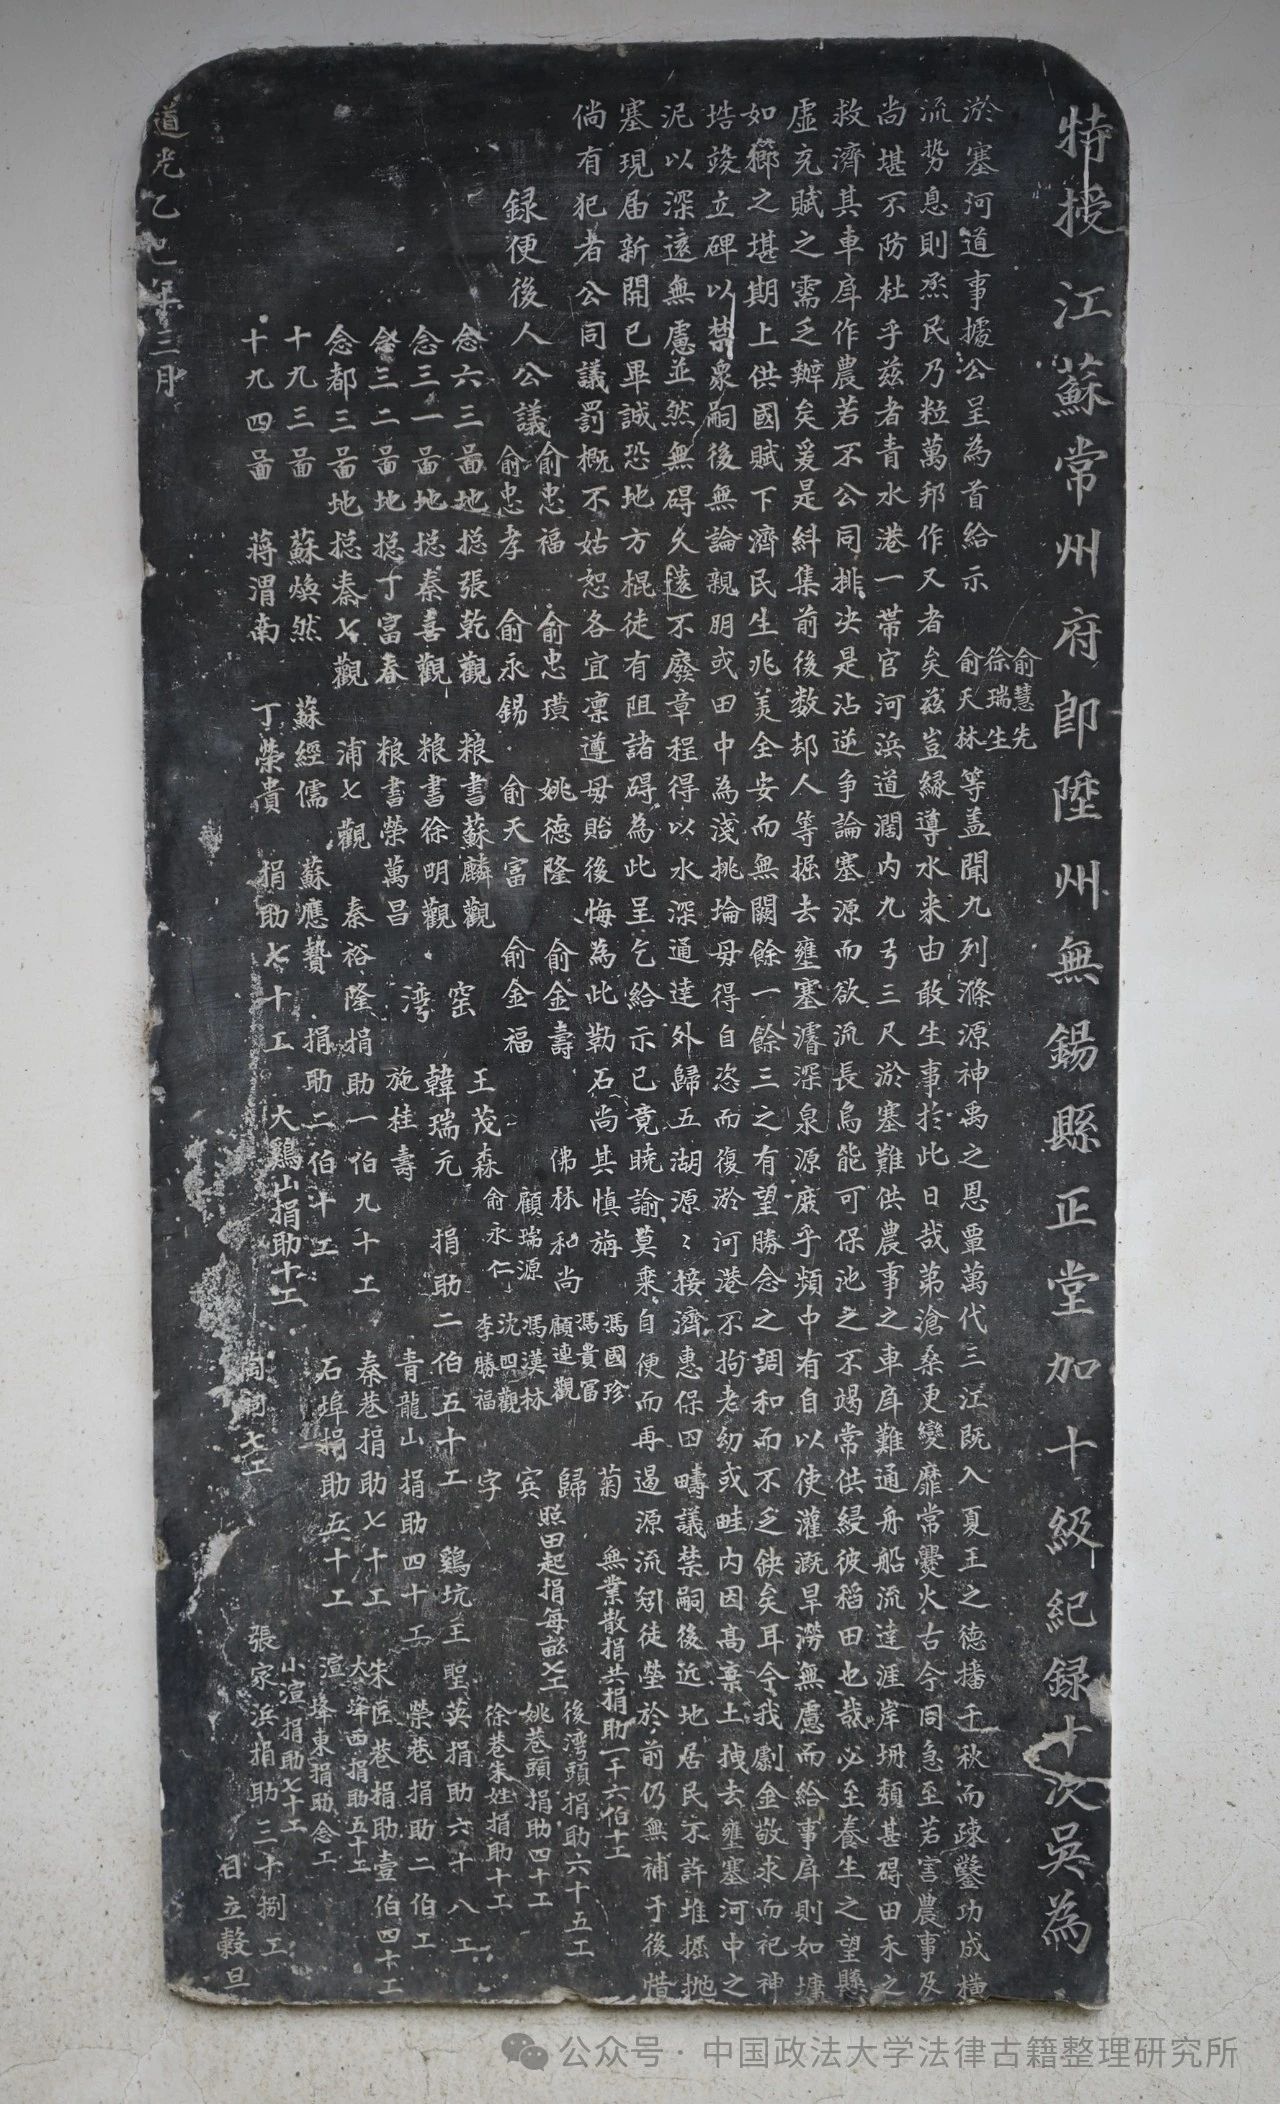 特授江蘇常州府卽陞州無錫縣正堂加十級紀録十次吳為
淤塞河道事據公呈為首給示
俞慧先
徐瑞生
俞天林
等盖聞九列滌源神禹之恩覃萬代三江旣入夏王之德播千秋而疏鑿功成橫
流势息則烝民乃粒萬邦作乂者矣兹豈緣導水来由敢生事扵此日哉第滄桑更變靡常爨火古今同急至若害農事及
尚堪不防杜乎兹者青水港一帶官河浜道濶内九弓三尺淤塞難供農事之車戽難通舟船流達涯岸坍頽甚碍田禾之
救濟其車戽作農若不公同排决是沾逆争論塞源而欲流長烏能可保池之不竭常供綬彼稻田也哉必至養生之望縣
虚充賦之需乏辦矣爰是糾集前後数却人等掘去壅塞濬深泉源庶乎頻中有自以使灌溉旱澇無慮而給事戽則如墉
如櫛之堪期上供國賦下濟民生兆美全安而無闕餘一餘三之有望勝念之調和而不乏缺矣耳今我劇金敬求而祀神
埲竣立碑以禁衆嗣後無論親朋或田中為淺挑埨毋得自恣而復淤河港不拘老幼或畦内因髙棄土拽去壅塞河中之
泥以深遠無慮並然無碍久遠不廢章程得以水深通達外歸五湖源〻接濟惠保田疇議禁嗣後近地居民不許堆掘抛
塞現届新開已畢誠恐地方棍徒有阻諸碍為此呈乞給示已竟曉諭莫乘自便而再遏源流矧徒塋於前仍無補于後惜
倘有犯者公同議罰概不姑恕各宜凛遵毋貽後悔為此勒石尚其慎旃
録便後人公議
俞忠福 俞忠璜 姚德隆 俞金壽
俞忠孝 俞永錫 俞天富 俞金福
佛林和尚
顧瑞源
俞永仁
馮國珍
馮貴冨
顧連觀
馮漢林
沈四觀
李勝福
菊
歸
宾
字
無業散捐共捐助一千六伯十工
照田起捐每畆七工
後湾頭捐助六十五工
姚巷頭捐助四十工
徐巷朱姓捐助十工
念六三啚地捴張乾觀 粮書蘇麟觀
念三一啚地捴秦喜觀 粮書徐明觀
念三二啚地捴丁富春 粮書榮萬昌
窑
湾
王茂森
韓瑞元
施桂壽
捐助二伯五十工
鷄坑
王聖英捐助六十八工
念都三啚地捴秦七觀 浦七觀 秦裕隆捐助一伯九十工
青龍山捐助四十工
榮巷捐助二伯工
十九三啚 蘇煥然 蘇經儒 蘇應贄 捐助二伯十工
秦巷捐助七十工
朱匠巷捐助壹伯四十工
大夅西捐助五十工
石埠捐助五十工
渲夅東捐助念工
小渲捐助七十工
十九四啚 蔣渭南 丁榮貴 捐助七十工 大鷄山捐助十工
張家浜捐助三十捌工
道光乙巳年三月
日立穀旦
公众号 · 中国政法大学法律古籍整理研究所